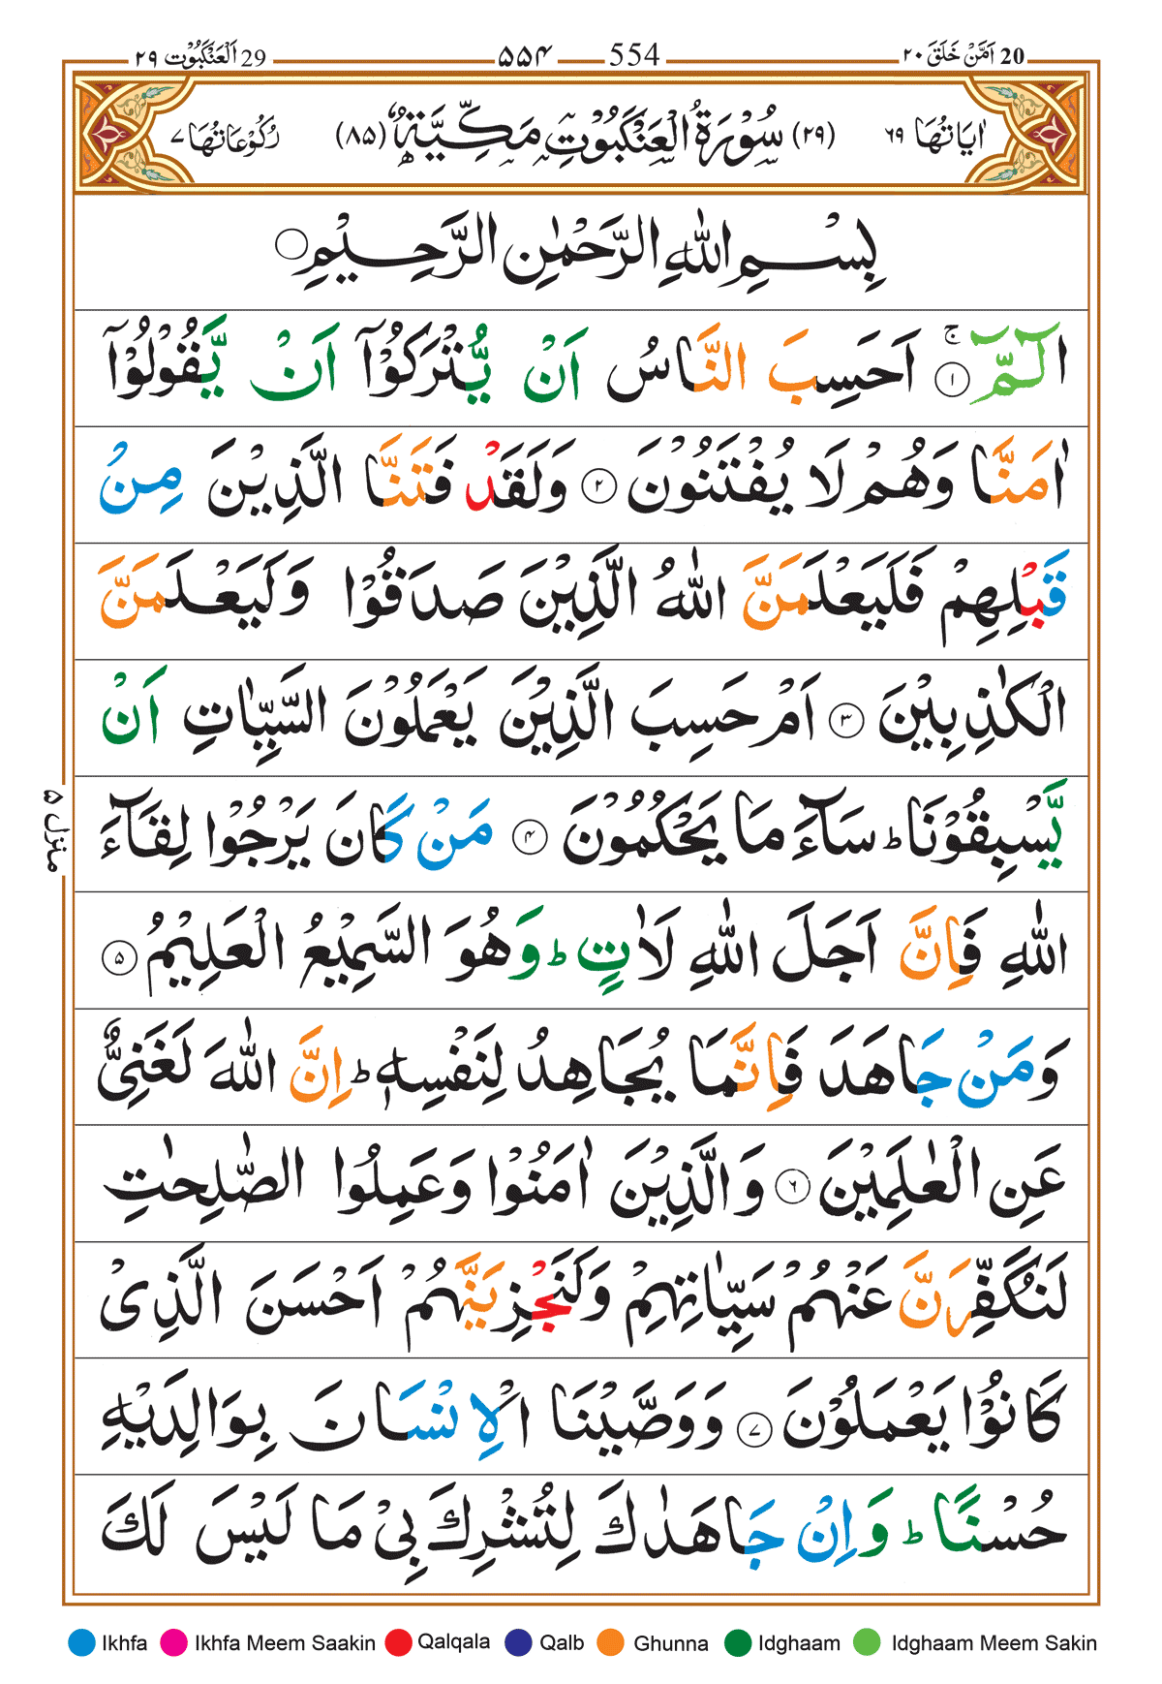 20 اَمَّنْ خَلَقَ ٢٠
554 ۵۵۴
29 اَلْعَنْكَبُوْت ٢٩
اٰيَاتُهَا ٦٩
(٢٩) سُوْرَةُ الْعَنْكَبُوْتِ مَكِّيَّةٌ (٨٥)
رُكُوْعَاتُهَا ٧
بِسْمِ اللّٰهِ الرَّحْمٰنِ الرَّحِيْمِ
الٓمّٓ ۚ ١ اَحَسِبَ النَّاسُ اَنْ يُّتْرَكُوْٓا اَنْ يَّقُوْلُوْٓا
اٰمَنَّا وَهُمْ لَا يُفْتَنُوْنَ ٢ وَلَقَدْ فَتَنَّا الَّذِيْنَ مِنْ
قَبْلِهِمْ فَلَيَعْلَمَنَّ اللّٰهُ الَّذِيْنَ صَدَقُوْا وَلَيَعْلَمَنَّ
الْكٰذِبِيْنَ ٣ اَمْ حَسِبَ الَّذِيْنَ يَعْمَلُوْنَ السَّيِّاٰتِ اَنْ
يَّسْبِقُوْنَا ؕ سَآءَ مَا يَحْكُمُوْنَ ۴ مَنْ كَانَ يَرْجُوْا لِقَآءَ
اللّٰهِ فَاِنَّ اَجَلَ اللّٰهِ لَاٰتٍ ؕ وَهُوَ السَّمِيْعُ الْعَلِيْمُ ۵
وَمَنْ جَاهَدَ فَاِنَّمَا يُجَاهِدُ لِنَفْسِهٖ ؕ اِنَّ اللّٰهَ لَغَنِيٌّ
عَنِ الْعٰلَمِيْنَ ٦ وَالَّذِيْنَ اٰمَنُوْا وَعَمِلُوا الصّٰلِحٰتِ
لَنُكَفِّرَنَّ عَنْهُمْ سَيِّاٰتِهِمْ وَلَنَجْزِيَنَّهُمْ اَحْسَنَ الَّذِيْ
كَانُوْا يَعْمَلُوْنَ ٧ وَوَصَّيْنَا الْاِنْسَانَ بِوَالِدَيْهِ
حُسْنًا ؕ وَاِنْ جَاهَدٰكَ لِتُشْرِكَ بِيْ مَا لَيْسَ لَكَ
منزل ۵
Ikhfa Ikhfa Meem Saakin Qalqala Qalb Ghunna Idghaam Idghaam Meem Sakin